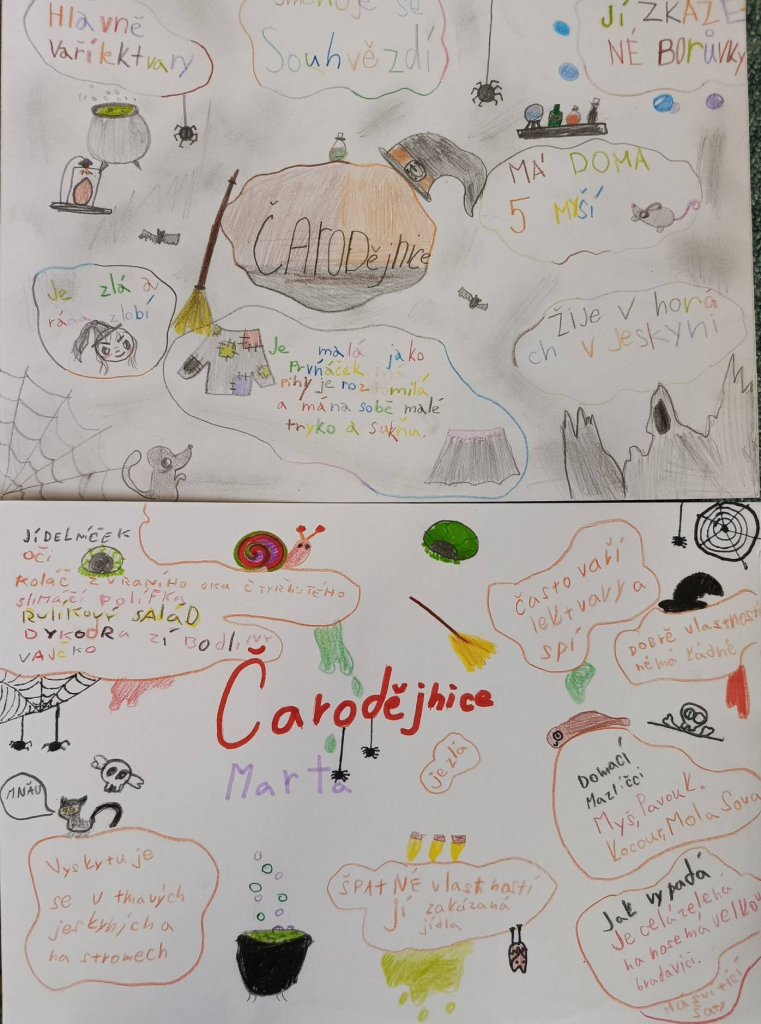 Hlavně
Vaří lektvary
jmenuje se
Souhvězdí
JÍ ZKAŽE
NÉ BORŮVKY
MÁ DOMA
5 MYŠÍ
ČARODějnice
Je zlá a
ráda zlobí
Je malá jako
Prvňáček má
pihy je roztomilá
a má na sobě malé
tryko a sukňu.
Žije v horá
ch v jeskyni
JÍDELNÍČEK
OČI
KOLÁČ Z VRANÍHO OKA ČTYŘLISTÉHO
SLIMÁČÍ POLÍFKA
RULÍKOVÝ SALÁD
DYKOBRAZÍ BODLINY
VAJČKO
ČASTO VAŘÍ
lektvary a
spí
DOBRÉ vlastnosti
némá žádné
Čarodějnice
Marta
je zlá
MŇÁU
Domácí
Mazlíčci
Myš, Pavouk.
Kocour, Mola Sova
Vyskytuje
se v tmavých
jeskyních a
na stromech
ŠPATNÉ vlastnosti
jí zakázaná
jídla
Jak vypadá
Je celá zelená
na nose má velkou
bradavici.
Má svítící
šaty